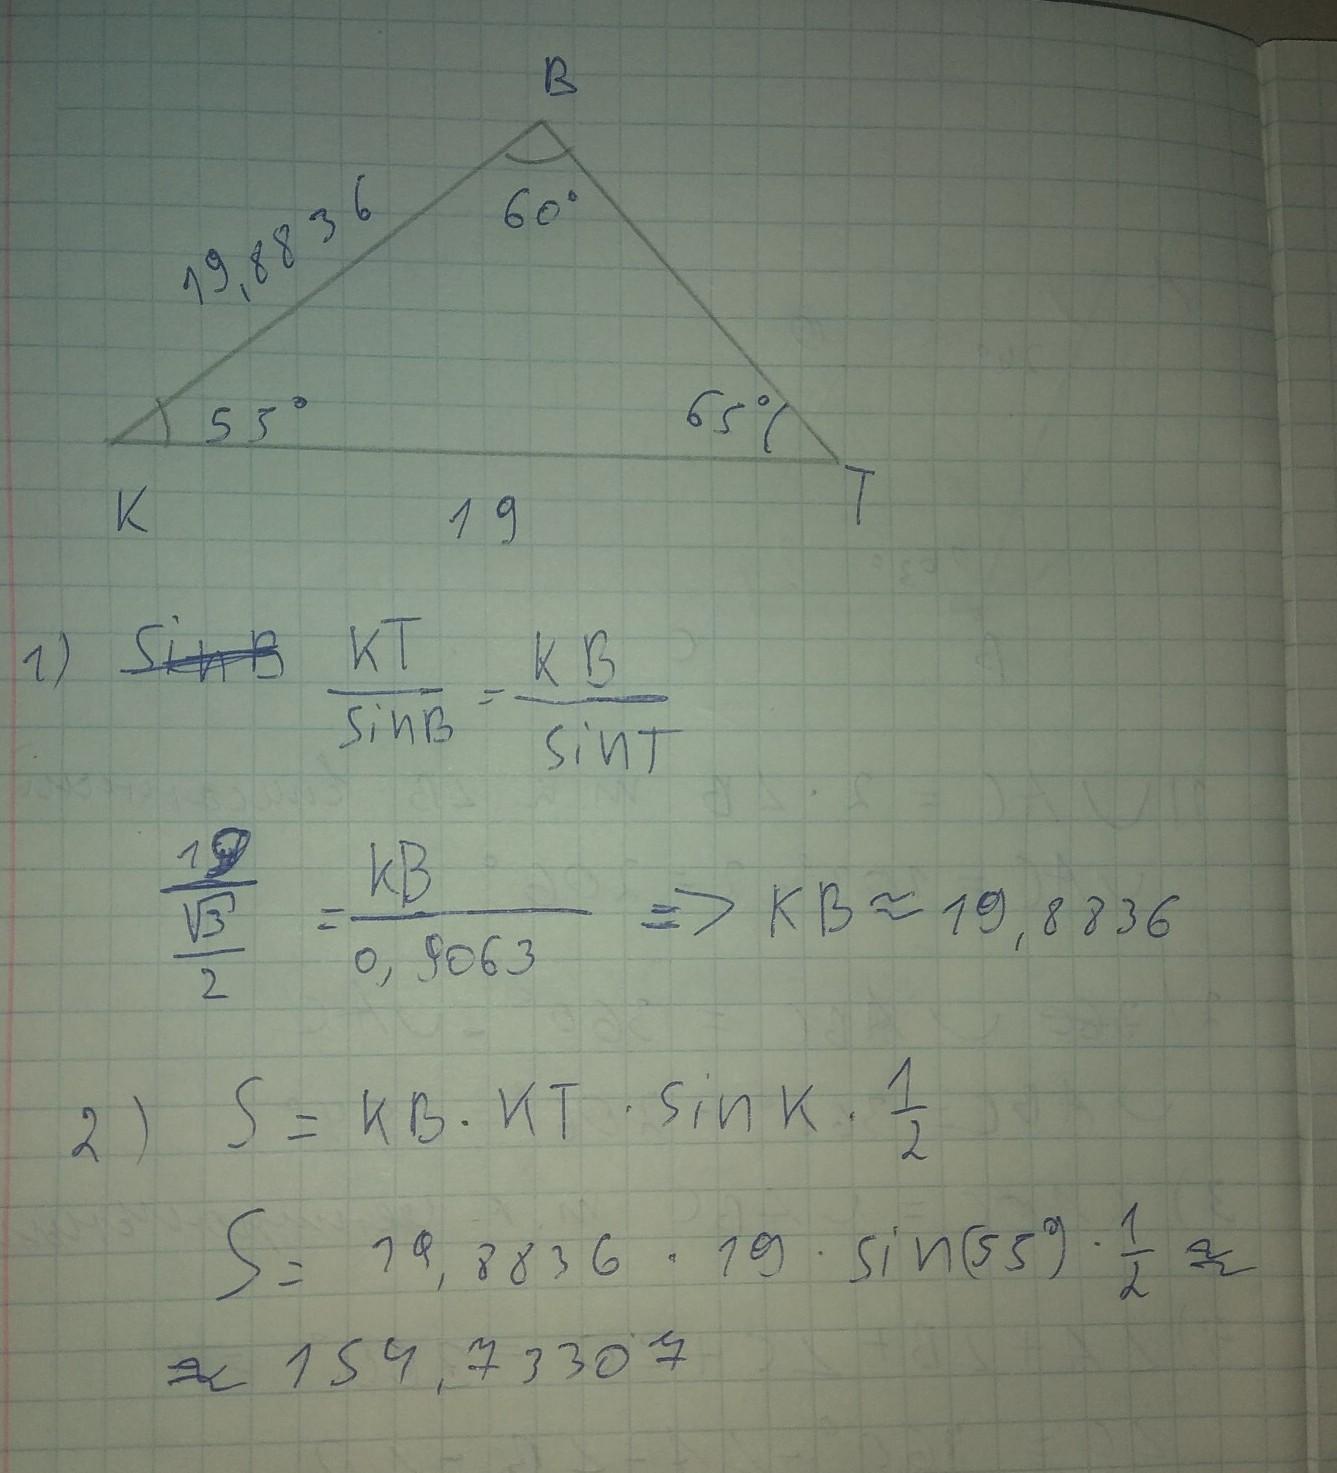 B
19,8836
60°
55°
65°
K
19
T
1) SinB KT/sinB = KB/sinT
19/(√3/2) = KB/0,9063 => KB ≈ 19,8836
2) S = KB · KT · sinK · 1/2
S = 19,8836 · 19 · sin(55°) · 1/2 ≈
≈ 154,73307